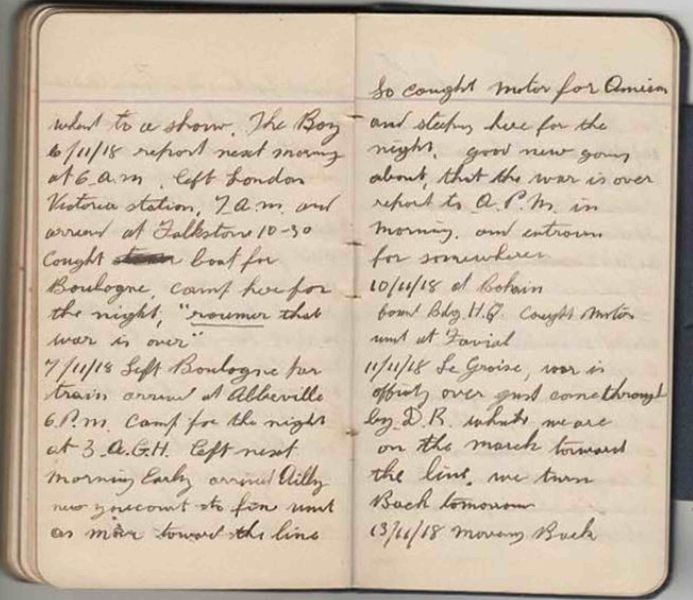 whent to a show. The Boy
6/11/18 report next morning
at 6 a.m. left London
Victoria station, 7 A.m. and
arrived at Falkstone 10-30
Cought boat for
Boulogne, camp hee for
the night, "roumer that
war is over"
7/11/18 Left Boulogne for
train arrived at Abbeville
6 P.m. Camp for the night
at 3 A.G.H. left next
morning Early arrived Ailly
unit
as toward the line
So cought motor for Amiens
and steping here for the
night. good new going
about, that the war is over
report to A.P.M. in
morning. and entrain
for somewhere
10/11/18 at Bohain
found Bdg. H.Q. cought motor
unit at Favial
11/11/18 Le Groise, war is
over just come through
by D.R. whats we are
on the march toward
the line. we turn
Back tomorrow
13/11/18 moving Back